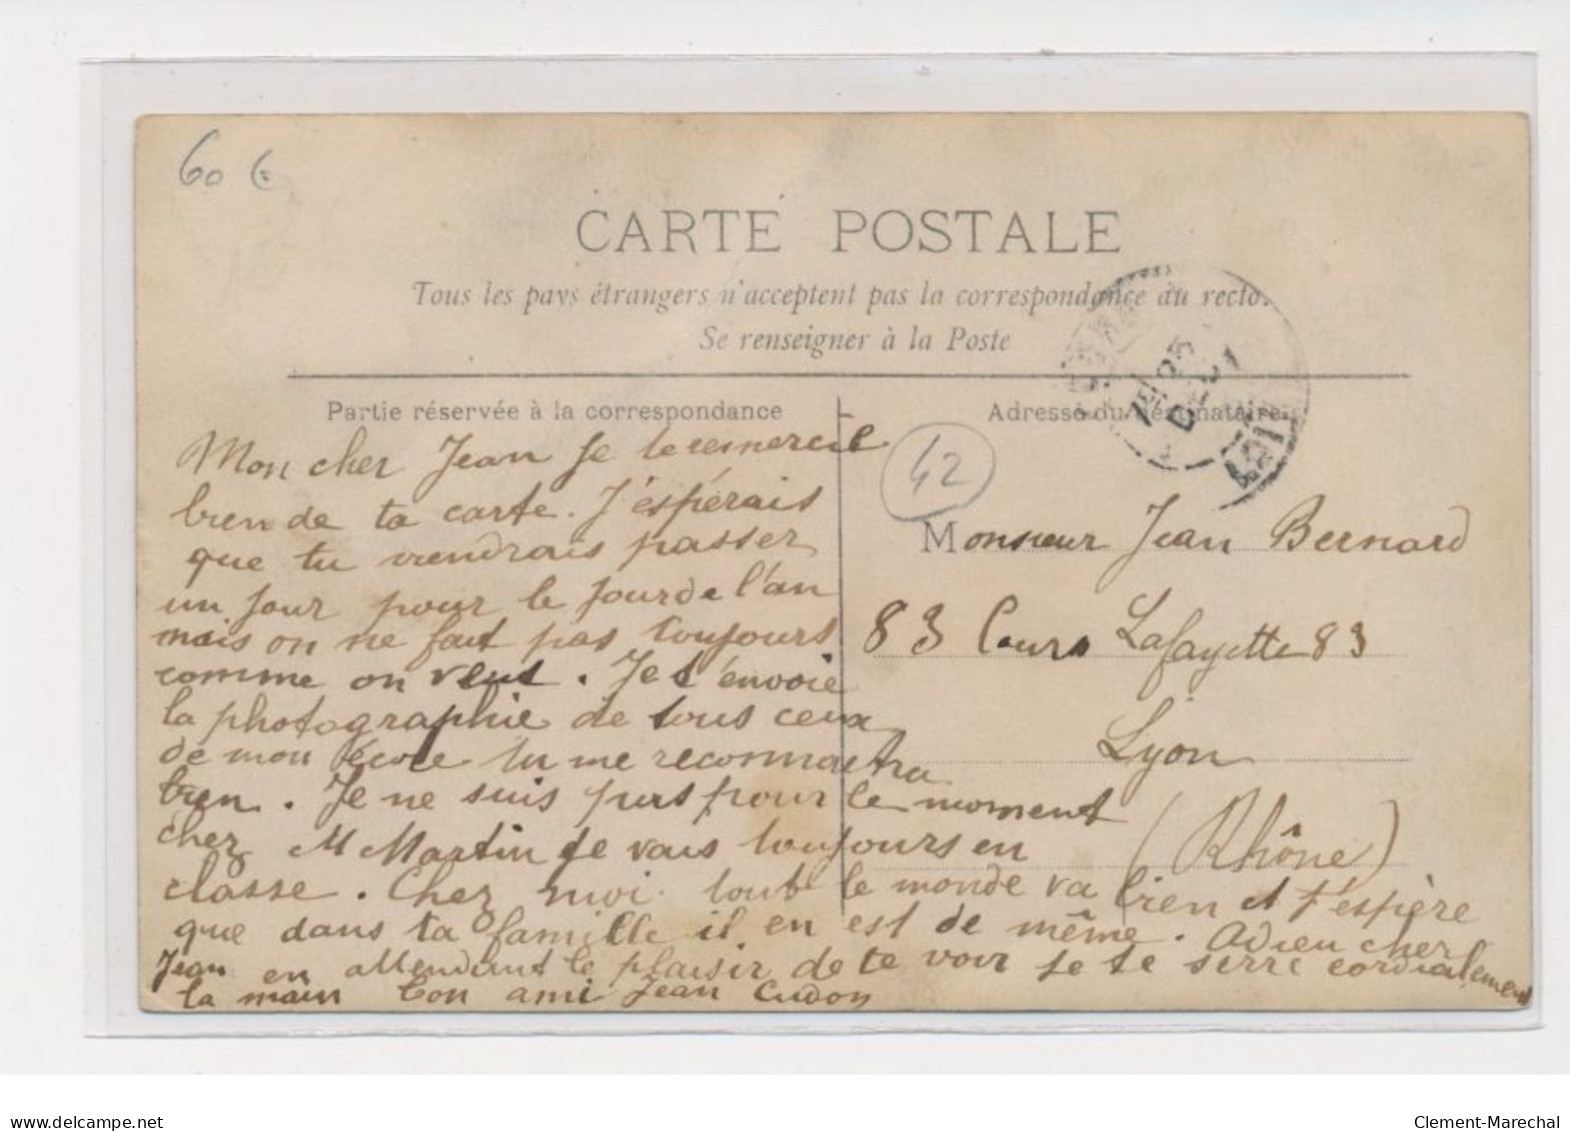 60 €
CARTE POSTALE
Tous les pays étrangers n'acceptent pas la correspondance au recto.
Se renseigner à la Poste
Partie réservée à la correspondance
Mon cher Jean Je te remercie
bien de ta carte. J'espérais
que tu viendrais passer
un jour pour le jour de l'an
mais on ne fait pas toujours
comme on veut. Je t'envoie
la photographie de tous ceux
de mon école tu me reconnaitra
bien. Je ne suis pas pour le moment
chez M Martin je vais toujours en
classe. Chez moi tout le monde va bien et j'espère
que dans ta famille il en est de même. Adieu cher
Jean en attendant le plaisir de te voir je te serre cordialement
la main Ton ami Jean
Adresse du destinataire
42
Monsieur Jean Bernard
83 Cours Lafayette 83
Lyon
(Rhône)
delcampe.net
Clement-Marechal